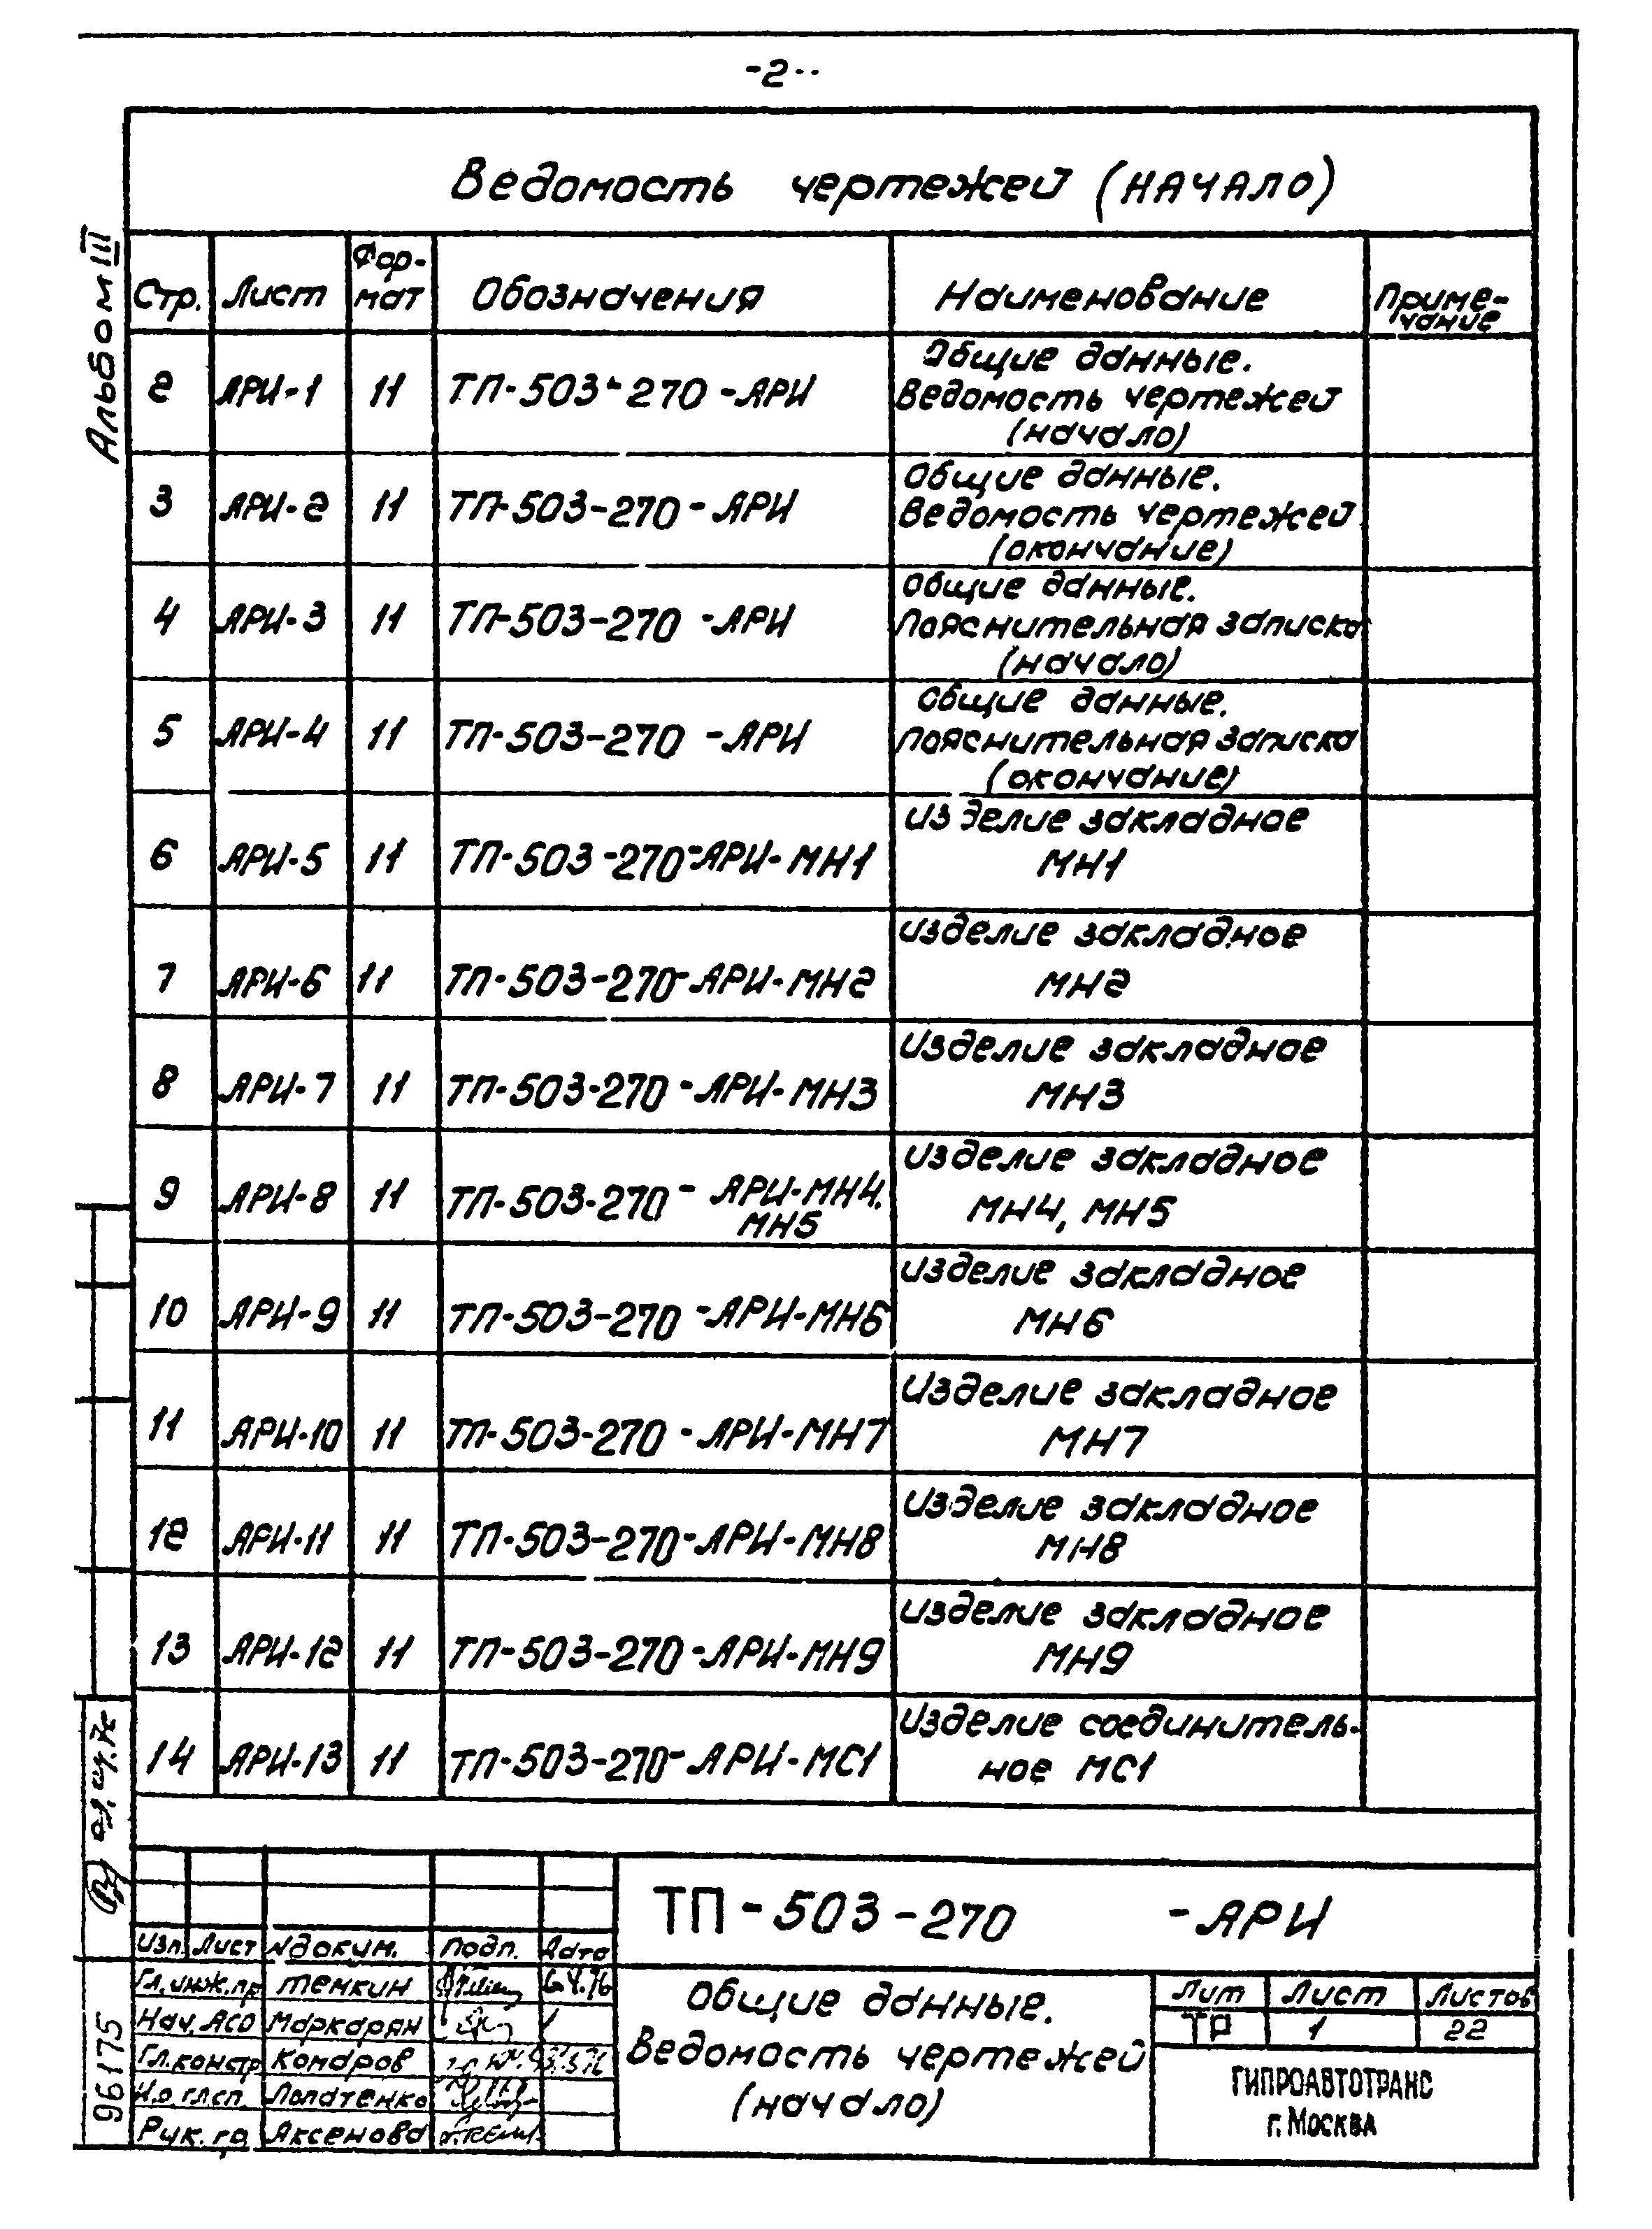 -2-
Альбом III
Ведомость чертежей (начало)
Стр. Лист Фор-мат Обозначения Наименование Приме-чание
2 АРИ-1 11 ТП-503-270-АРИ Общие данные.
Ведомость чертежей
(начало)
3 АРИ-2 11 ТП-503-270-АРИ Общие данные.
Ведомость чертежей
(окончание)
4 АРИ-3 11 ТП-503-270-АРИ Общие данные.
Пояснительная записка
(начало)
5 АРИ-4 11 ТП-503-270-АРИ Общие данные.
Пояснительная записка
(окончание)
6 АРИ-5 11 ТП-503-270-АРИ-МН1 Изделие закладное
МН1
7 АРИ-6 11 ТП-503-270-АРИ-МН2 Изделие закладное
МН2
8 АРИ-7 11 ТП-503-270-АРИ-МН3 Изделие закладное
МН3
9 АРИ-8 11 ТП-503-270-АРИ-МН4. МН5 Изделие закладное
МН4, МН5
10 АРИ-9 11 ТП-503-270-АРИ-МН6 Изделие закладное
МН6
11 АРИ-10 11 ТП-503-270-АРИ-МН7 Изделие закладное
МН7
12 АРИ-11 11 ТП-503-270-АРИ-МН8 Изделие закладное
МН8
13 АРИ-12 11 ТП-503-270-АРИ-МН9 Изделие закладное
МН9
14 АРИ-13 11 ТП-503-270-АРИ-МС1 Изделие соединитель-
ное МС1
ТП-503-270 -АРИ
Изм. Лист №докум. Подп. Дата
Гл.инж.пр Темкин 6.4.76
Нач. АСО Маркарян
Гл.констр Комаров
И.о.гл.сп. Лопатенко
Рук. гр. Аксенова
Общие данные.
Ведомость чертежей
(начало)
Лит Лист Листов
ТР 1 22
ГИПРОАВТОТРАНС
г. Москва
96175